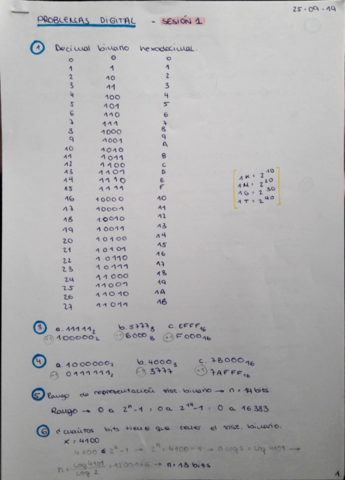 PROBLEMAS DIGITAL - SESIÓN 1
25-09-19
① Decimal binario hexadecimal
0 0 0
1 1 1
2 10 2
3 11 3
4 100 4
5 101 5
6 110 6
7 111 7
8 1000 8
9 1001 9
10 1010 A
11 1011 B
12 1100 C
13 1101 D
14 1110 E
15 1111 F
16 10000 10
17 10001 11
18 10010 12
19 10011 13
20 10100 14
21 10101 15
22 10110 16
23 10111 17
24 11000 18
25 11001 19
26 11010 1A
27 11011 1B
1K = 2^10
1M = 2^20
1G = 2^30
1T = 2^40
③ a. 11111₂ b. 5777₈ c. EFFF₁₆
+1 100000₂ +1 6000₈ +1 F000₁₆
④ a. 1000000₂ b. 4000₈ c. 7B000₁₆
-1 0111111₂ -1 3777 -1 7AFFF₁₆
⑤ Rango de representación sist. binario → n = 14 bits
Rango → 0 a 2^n-1 = 0 a 2^14-1 = 0 a 16383
⑥ cuántos bits tiene que tener el sist. binario.
X = 4100
4100 = 2^n - 1 → 2^n = 4100 + 1 → n log 2 = log 4101 →
n = log 4101 / log 2 → n = 13 bits
1